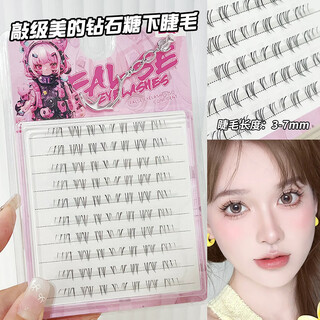 敲级美的钻石糖下睫毛
FALSE
EYELASHES
睫毛长度：3-7mm